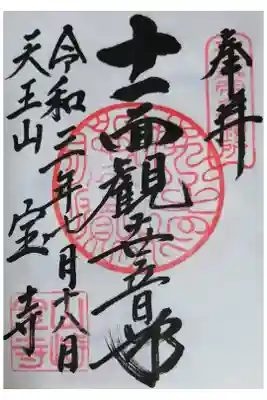 奉拝
十一面観世音
令和二年七月十八日
天王山 宝寺